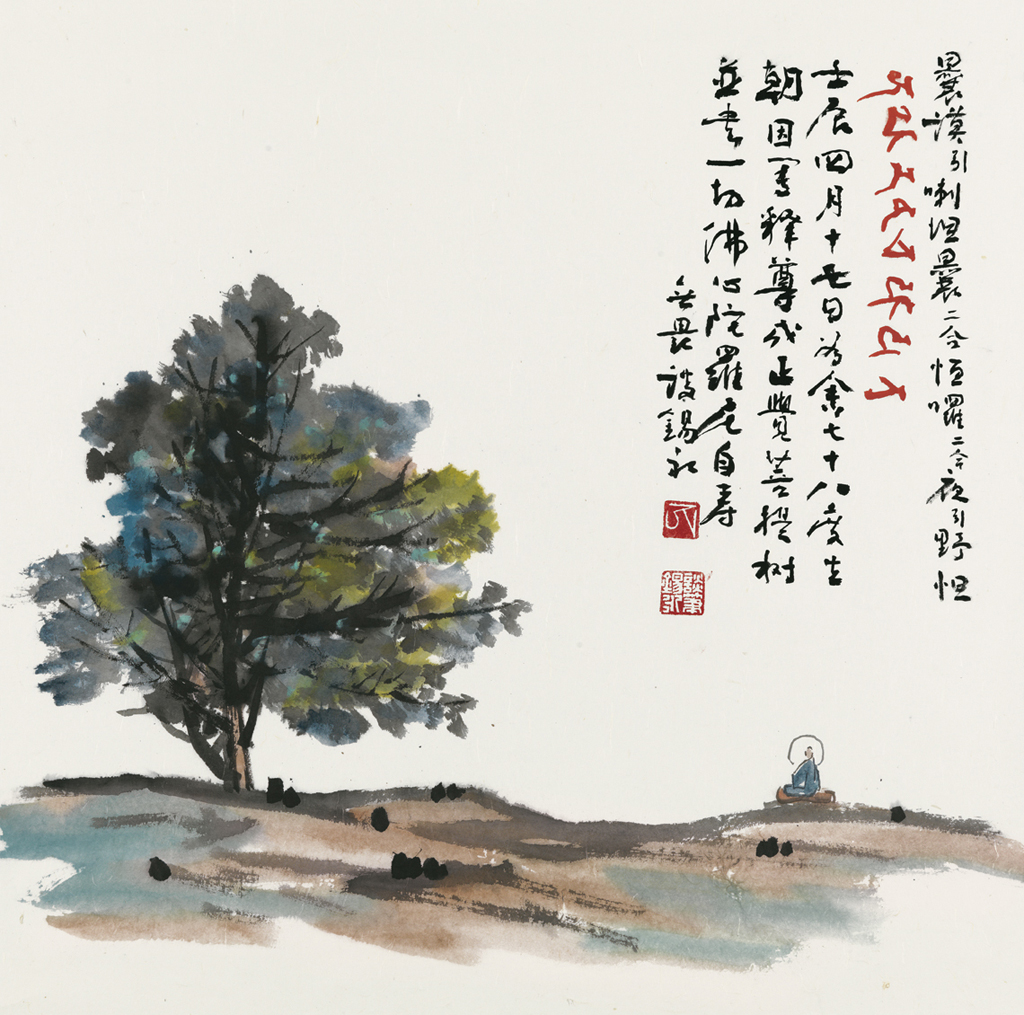 曩謨引喇怛曩二合怛囉二合夜引野怛
壬辰四月十七日為余七十八度生
朝因寫釋尊成正覺菩提树
並書一切佛心陀羅尼自壽
無畏談錫永